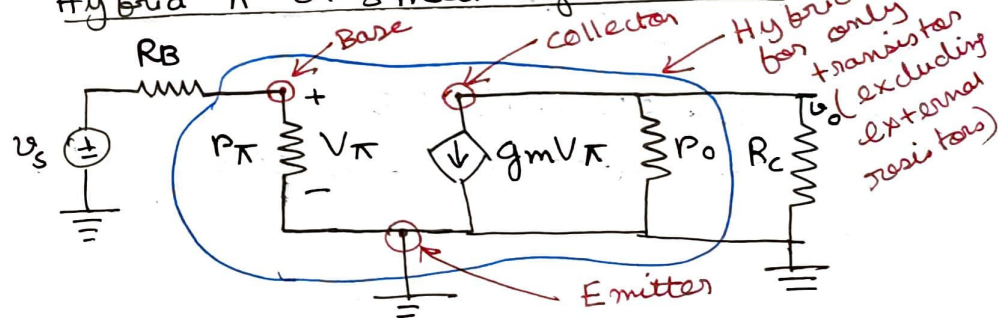 Hybrid π
Base
collector
for only
transistor
(excluding
external
resistors)
RB
+
vs
rπ
Vπ
gmVπ
ro
Rc
vo
−
Emitter